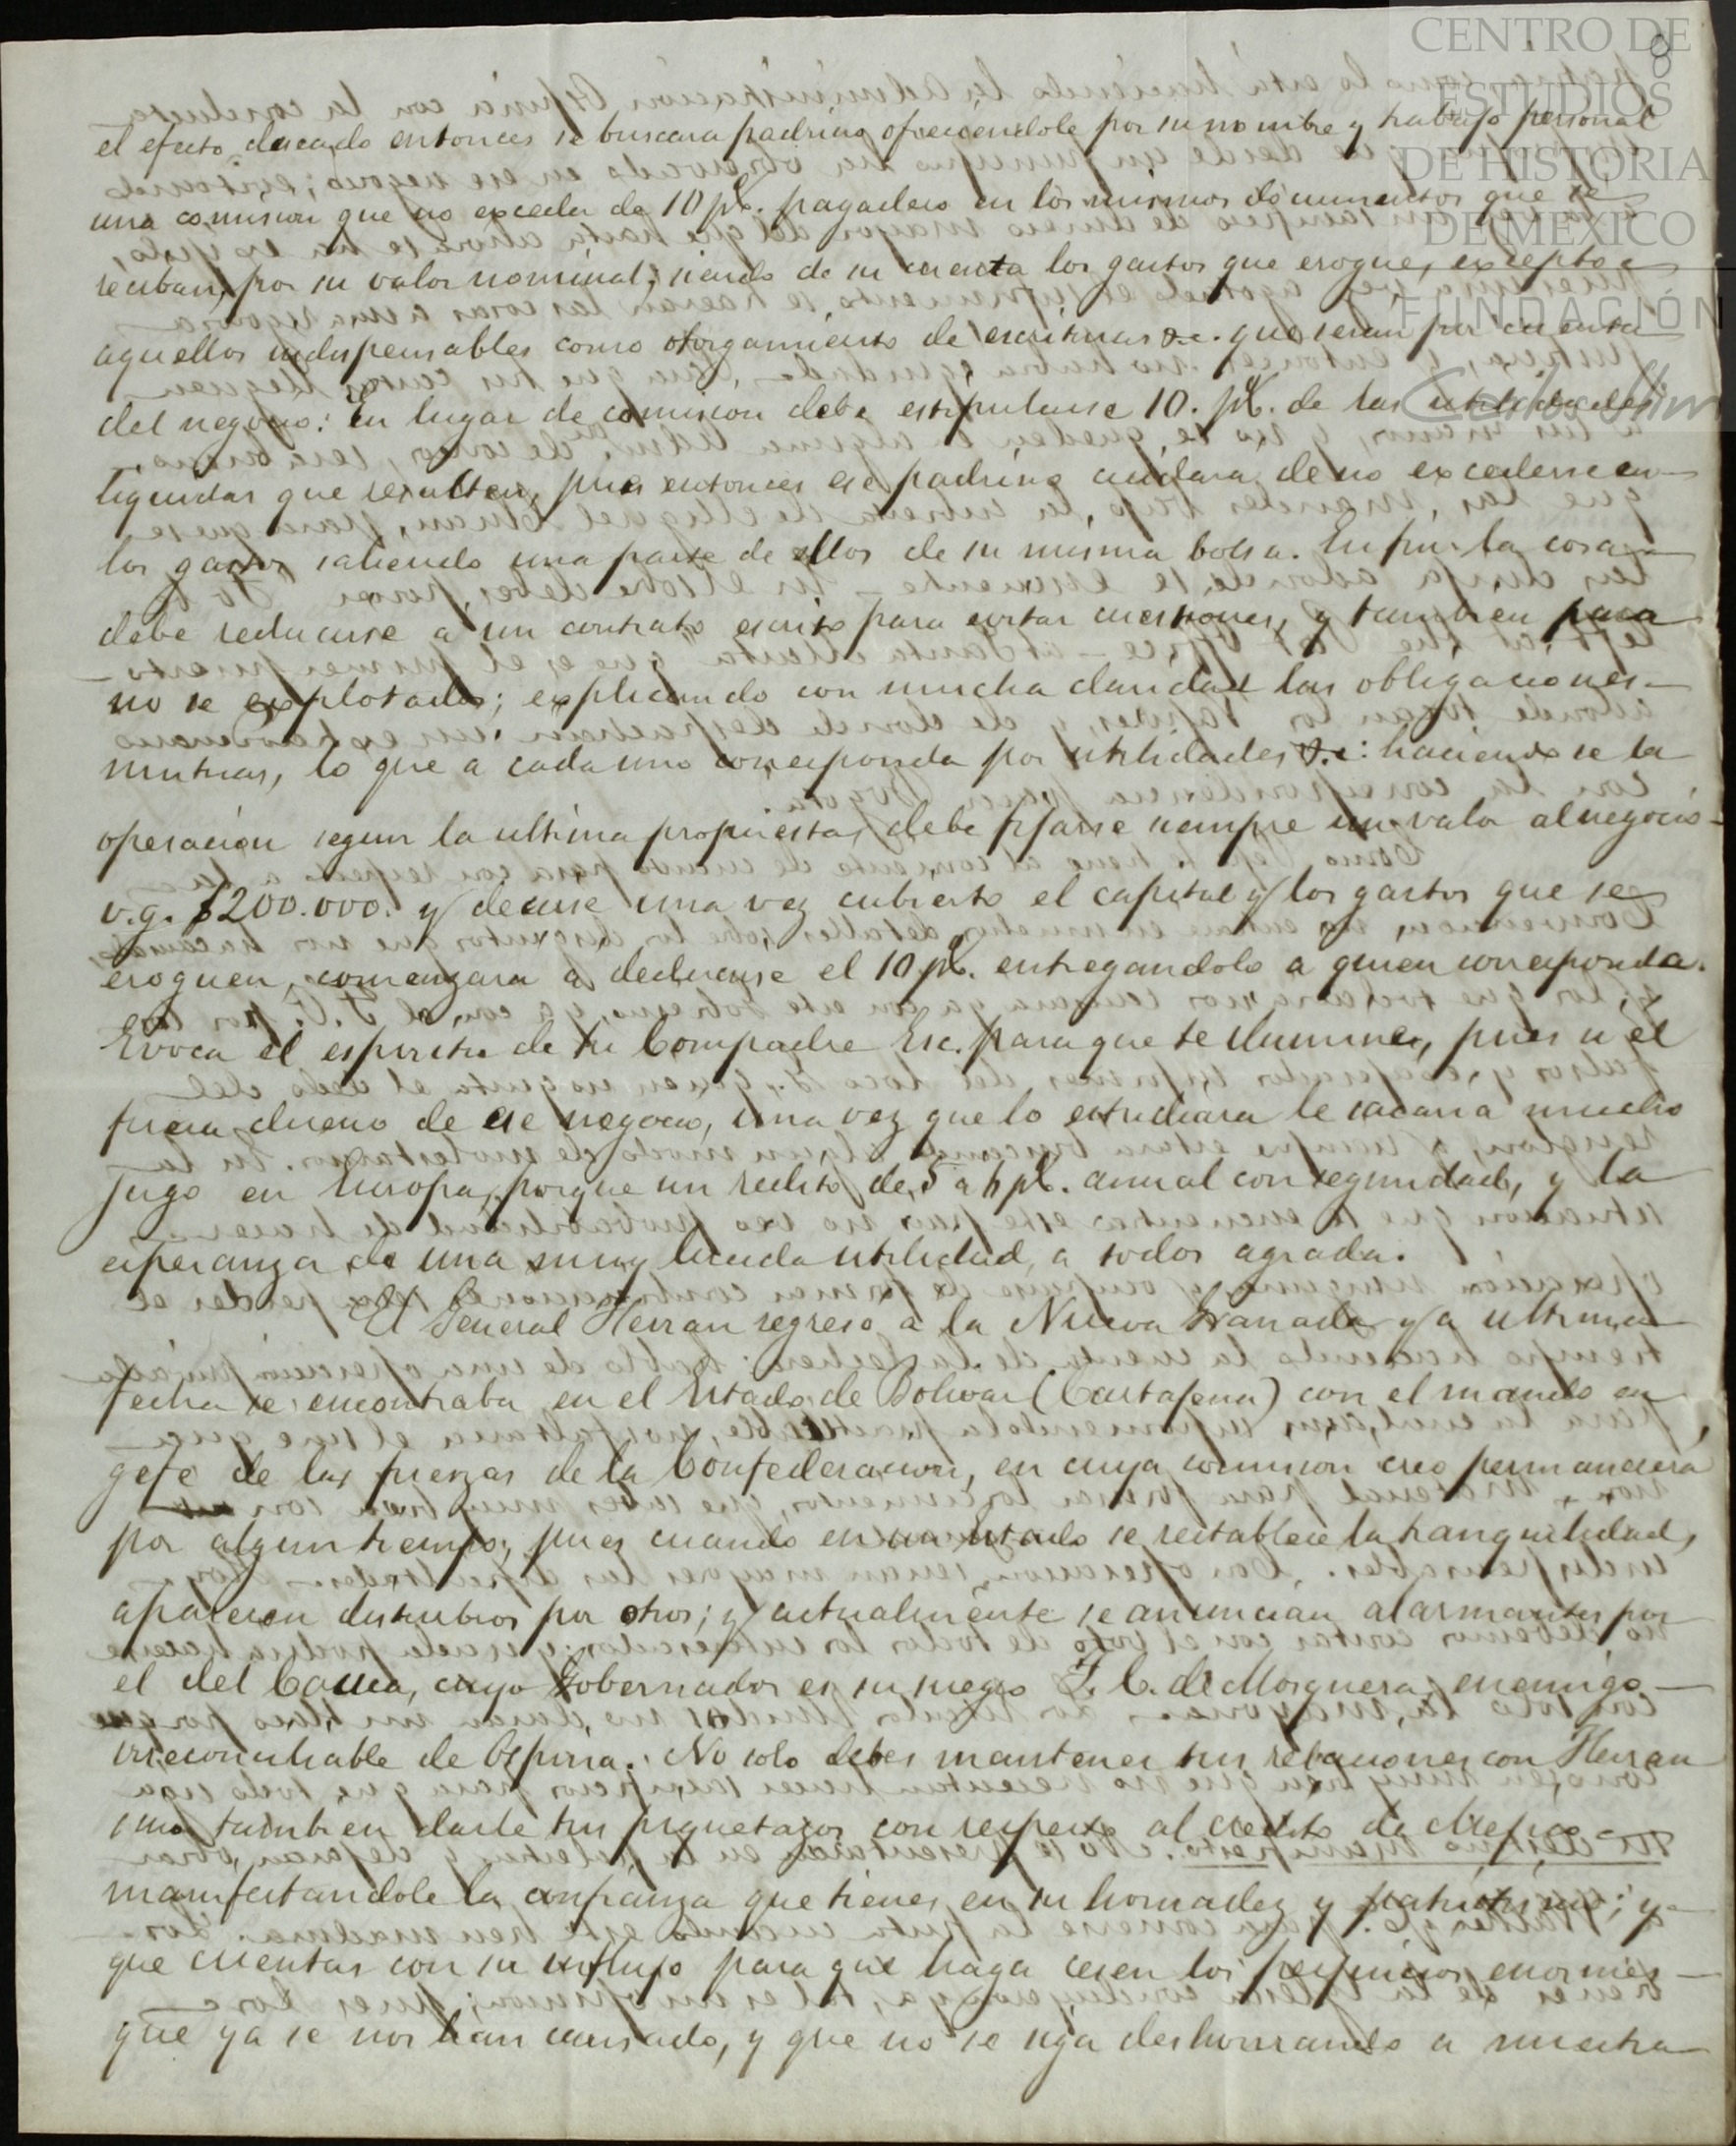 CENTRO DE
ESTUDIOS
DE HISTORIA
DE MEXICO
FUNDACIÓN
Carlos Slim
8
el efecto deseado entonces se buscara padrino ofreciendole por su nombre y trabajo personal
una comision que no exceda de 10 p%. pagadero en los mismos documentos que se
reciban, por su valor nominal; siendo de su cuenta los gastos que erogue, excepto
aquellos indispensables como otorgamiento de escrituras &c. que seran por cuenta
del negocio: En lugar de comision debe estipularse 10. p%. de las utilidades
liquidas que resulten, pues entonces ese padrino cuidara de no excederse en
los gastos saliendo una parte de ellos de su misma bolsa. En fin la cosa
debe reducirse a un contrato escrito para cortar cuestiones, y tambien para
no se explotados; explicando con mucha claridad las obligaciones
mutuas, lo que a cada uno corresponda por utilidades &c: haciendose la
operacion segun la ultima propuesta, debe fijarse siempre un valor al negocio
v.g. $200.000. y decirse una vez cubierto el capital y los gastos que se
eroguen, comenzara a deducirse el 10 p%. entregandolo a quien corresponda.
Evoca el espiritu de tu Compadre Esc. para que te ilumine, pues si el
fuera dueno de ese negocio, una vez que lo estudiara le sacaria mucho
jugo en Europa, porque un redito de 5 a 6 p%. anual con seguridad, y la
esperanza de una muy lucida utilidad, a todos agrada.
El General Herran regreso a la Nueva Granada y a ultima
fecha se encontraba en el Estado de Bolivar (Cartagena) con el mando en
gefe de las fuerzas de la Confederacion, en cuya comision creo permanecera
por algun tiempo, pues cuando en un Estado se restablece la tranquilidad,
aparecen disturbios por otros; y actualmente se anuncian alarmantes por
el del Cauca, cuyo Gobernador es su suegro T. C. de Mosquera, enemigo
irreconciliable de Ospina. No solo debes mantener tus relaciones con Herran
sino tambien darle tus piquetazos con respecto al credito de Mejico
manifestandole la confianza que tienes en su honradez y patriotismo; y
que cuentas con su influjo para que haga cesen los perjuicios enormes
que ya se nos han causado, y que no se siga deshonrando a nuestra